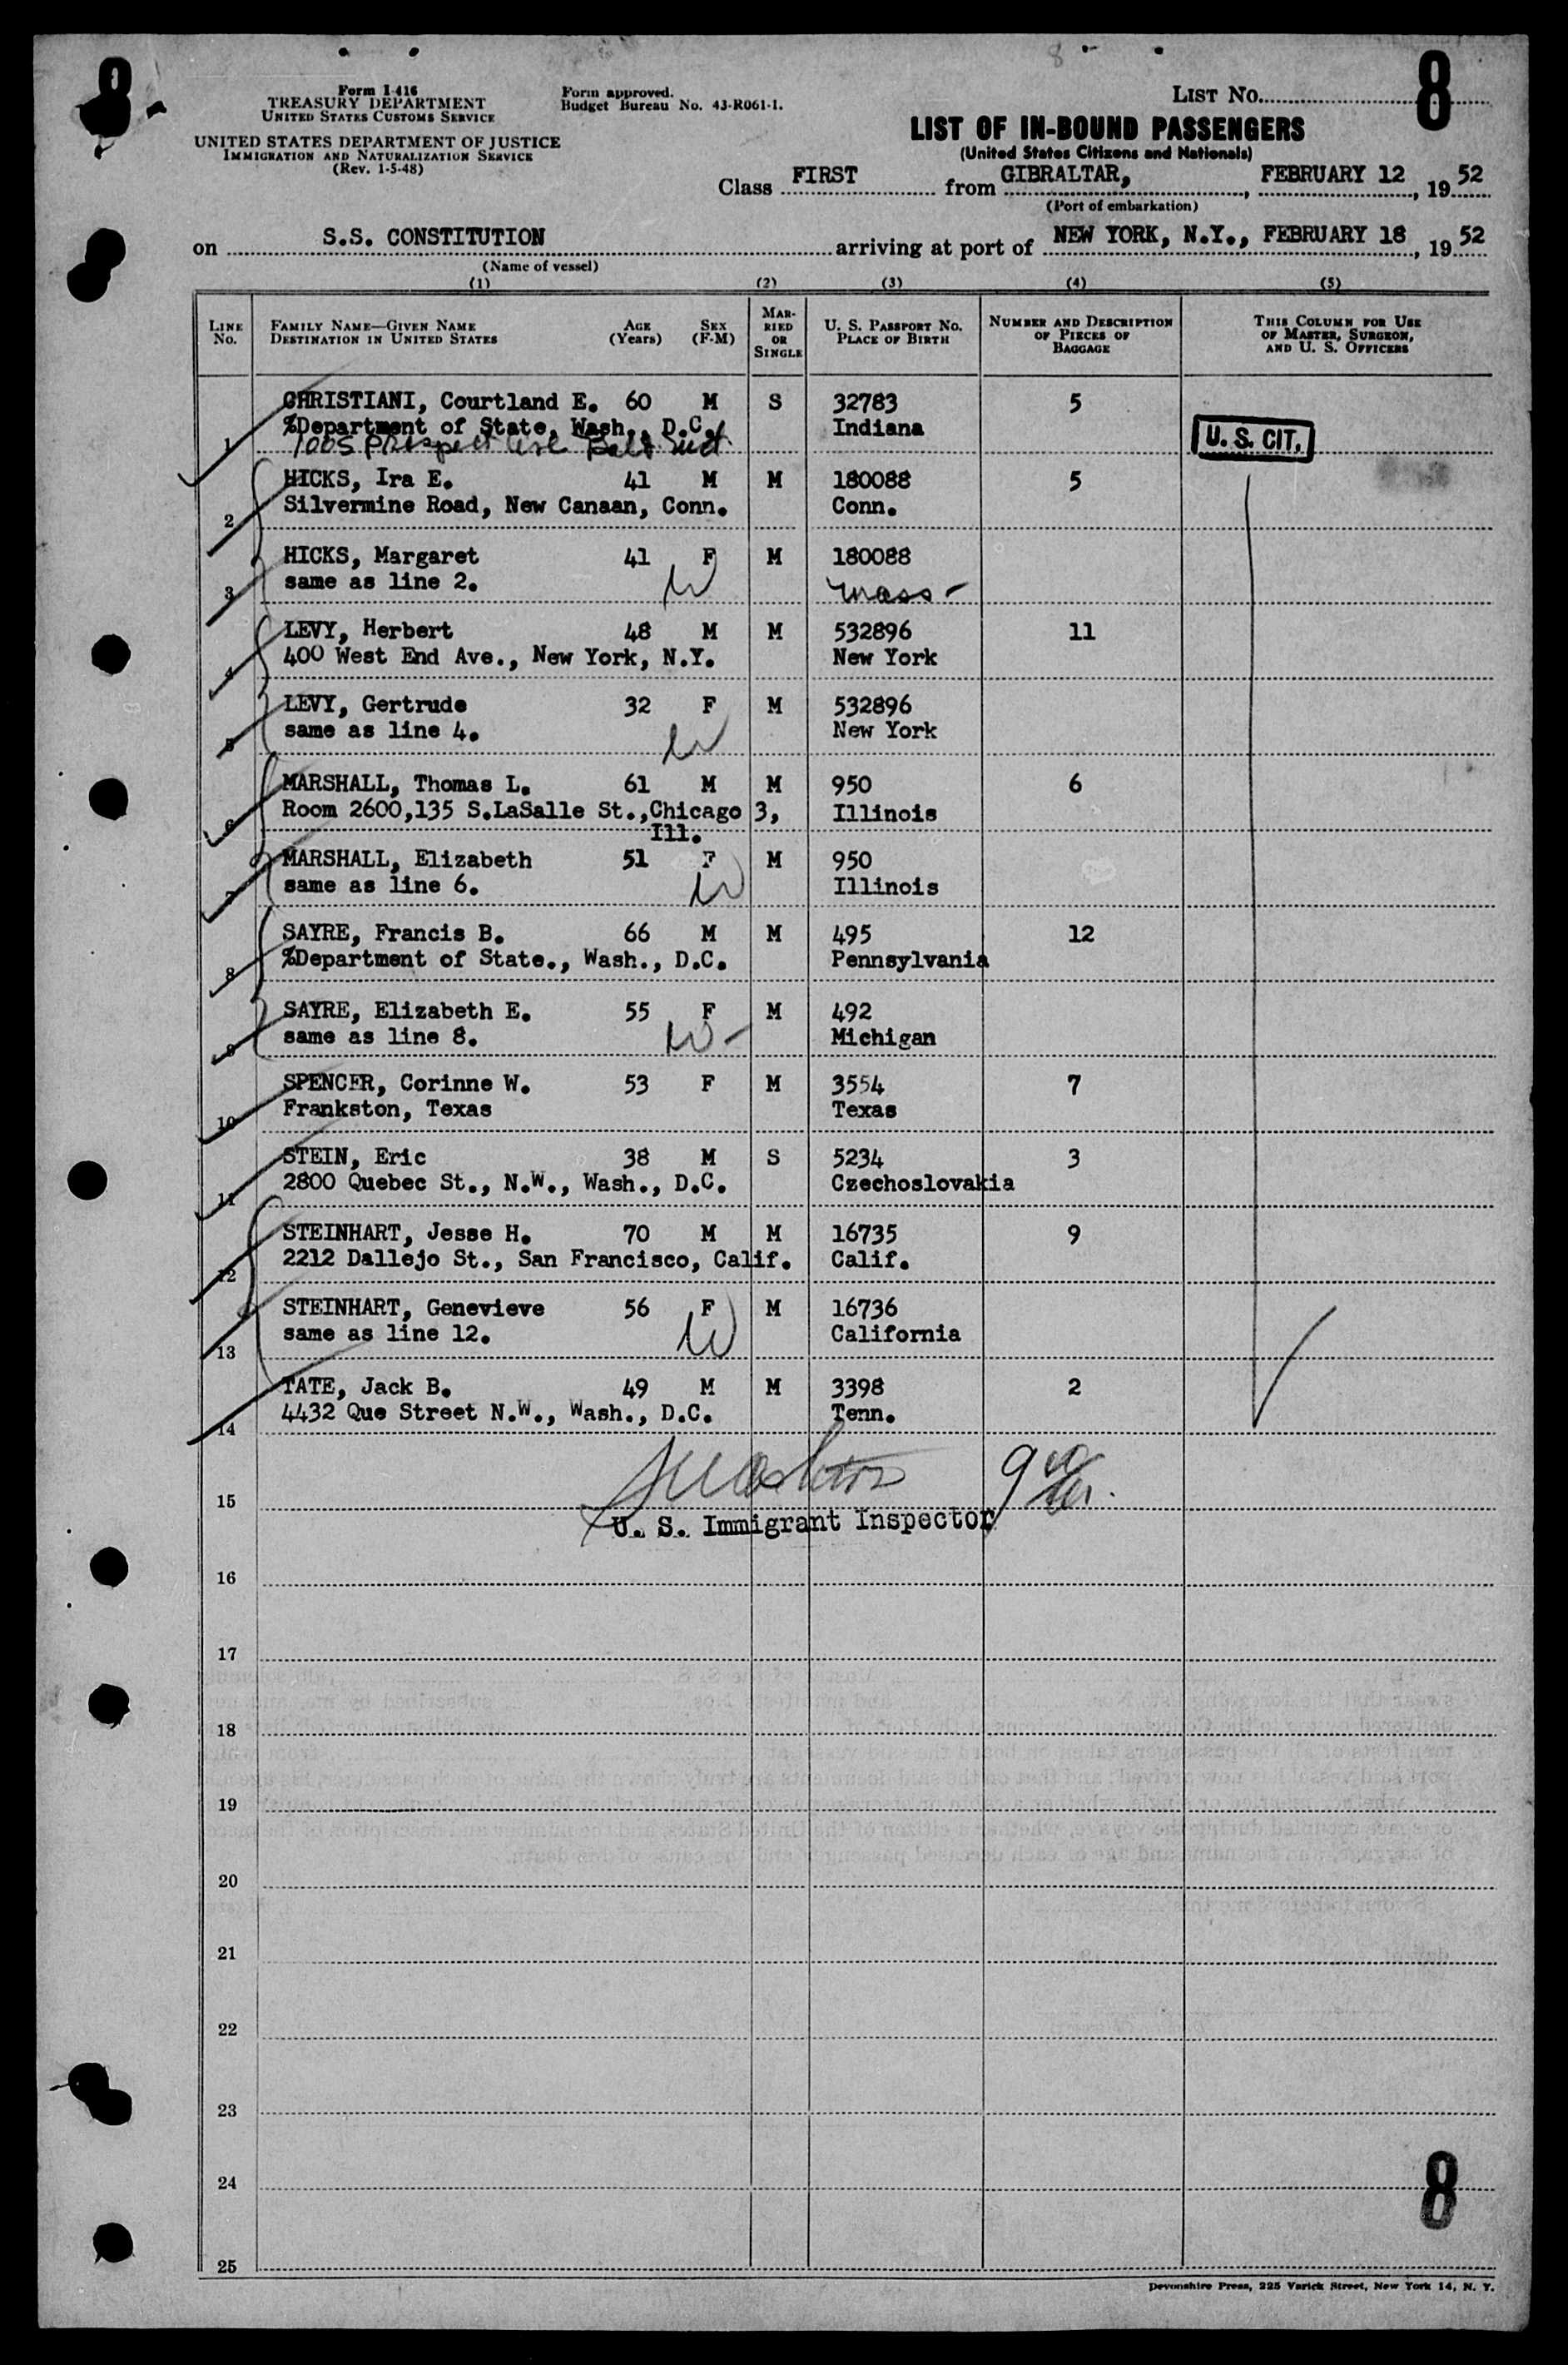 8
Form I-416
TREASURY DEPARTMENT
UNITED STATES CUSTOMS SERVICE
UNITED STATES DEPARTMENT OF JUSTICE
IMMIGRATION AND NATURALIZATION SERVICE
(Rev. 1-5-48)
Form approved.
Budget Bureau No. 43-R061-1.
LIST No. 8
LIST OF IN-BOUND PASSENGERS
(United States Citizens and Nationals)
Class FIRST from GIBRALTAR, FEBRUARY 12, 1952
(Port of embarkation)
on S.S. CONSTITUTION arriving at port of NEW YORK, N.Y., FEBRUARY 18, 1952
(Name of vessel)
(1) (2) (3) (4) (5)
LINE No. FAMILY NAME—GIVEN NAME DESTINATION IN UNITED STATES AGE (Years) SEX (F-M) MARRIED OR SINGLE U. S. PASSPORT No. PLACE OF BIRTH NUMBER AND DESCRIPTION OF PIECES OF BAGGAGE THIS COLUMN FOR USE OF MASTER, SURGEON, AND U. S. OFFICERS
CHRISTIANI, Courtland E. 60 M S 32783 5
%Department of State, Wash., D.C. Indiana
1 1005 Prospect Ave U. S. CIT.
HICKS, Ira E. 41 M M 180088 5
2 Silvermine Road, New Canaan, Conn. Conn.
HICKS, Margaret 41 F M 180088
3 same as line 2. W Mass-
LEVY, Herbert 48 M M 532896 11
4 400 West End Ave., New York, N.Y. New York
LEVY, Gertrude 32 F M 532896
5 same as line 4. W New York
MARSHALL, Thomas L. 61 M M 950 6
6 Room 2600,135 S.LaSalle St.,Chicago 3, Illinois
Ill.
MARSHALL, Elizabeth 51 F M 950
7 same as line 6. W Illinois
SAYRE, Francis B. 66 M M 495 12
8 %Department of State., Wash., D.C. Pennsylvania
SAYRE, Elizabeth E. 55 F M 492
9 same as line 8. W- Michigan
SPENCER, Corinne W. 53 F M 3554 7
10 Frankston, Texas Texas
STEIN, Eric 38 M S 5234 3
11 2800 Quebec St., N.W., Wash., D.C. Czechoslovakia
STEINHART, Jesse H. 70 M M 16735 9
12 2212 Dallejo St., San Francisco, Calif. Calif.
STEINHART, Genevieve 56 F M 16736
13 same as line 12. W California
TATE, Jack B. 49 M M 3398 2
14 4432 Que Street N.W., Wash., D.C. Tenn.
15
U. S. Immigrant Inspector
16
17
18
19
20
21
22
23
24
8
25
Devonshire Press, 225 Varick Street, New York 14, N. Y.